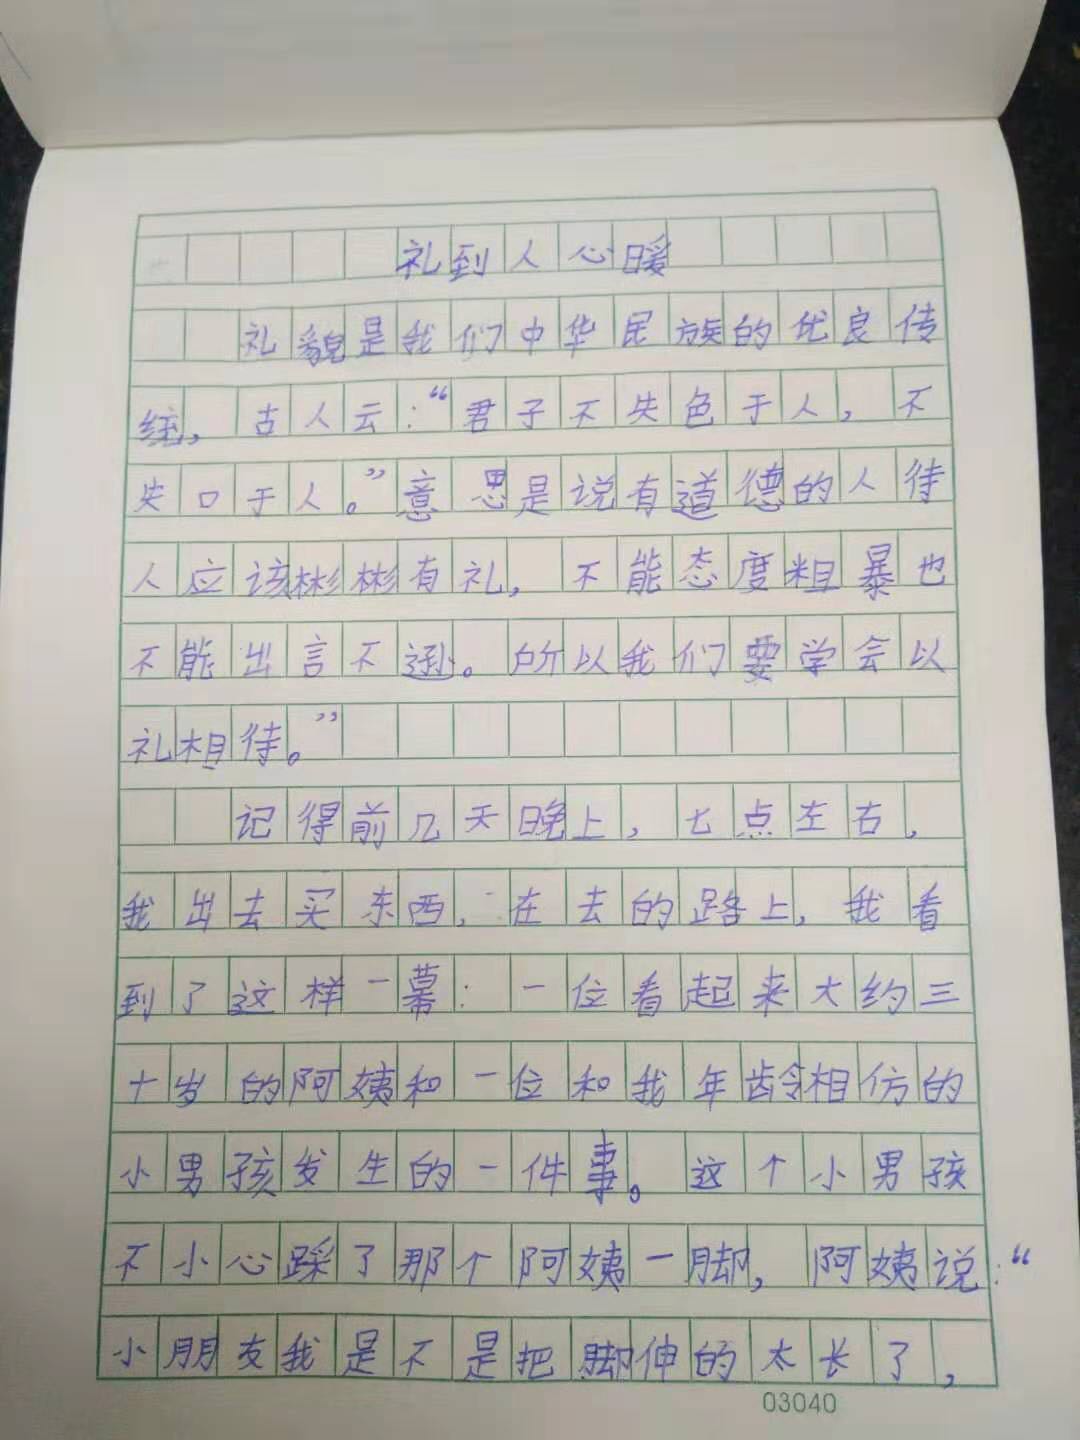 礼到人心暖
礼貌是我们中华民族的优良传
统，古人云：“君子不失色于人，不
失口于人。”意思是说有道德的人待
人应该彬彬有礼，不能态度粗暴也
不能出言不逊。所以我们要学会以
礼相待。”
记得前几天晚上，七点左右，
我出去买东西，在去的路上，我看
到了这样一幕：一位看起来大约三
十岁的阿姨和一位和我年龄相仿的
小男孩发生的一件事。这个小男孩
不小心踩了那个阿姨一脚，阿姨说：“
小朋友我是不是把脚伸的太长了，
03040